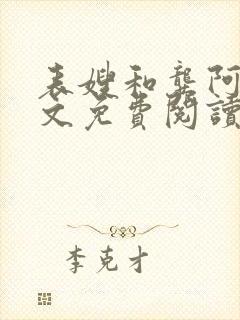 表嫂和龚阿
文免費閱讀
李克才